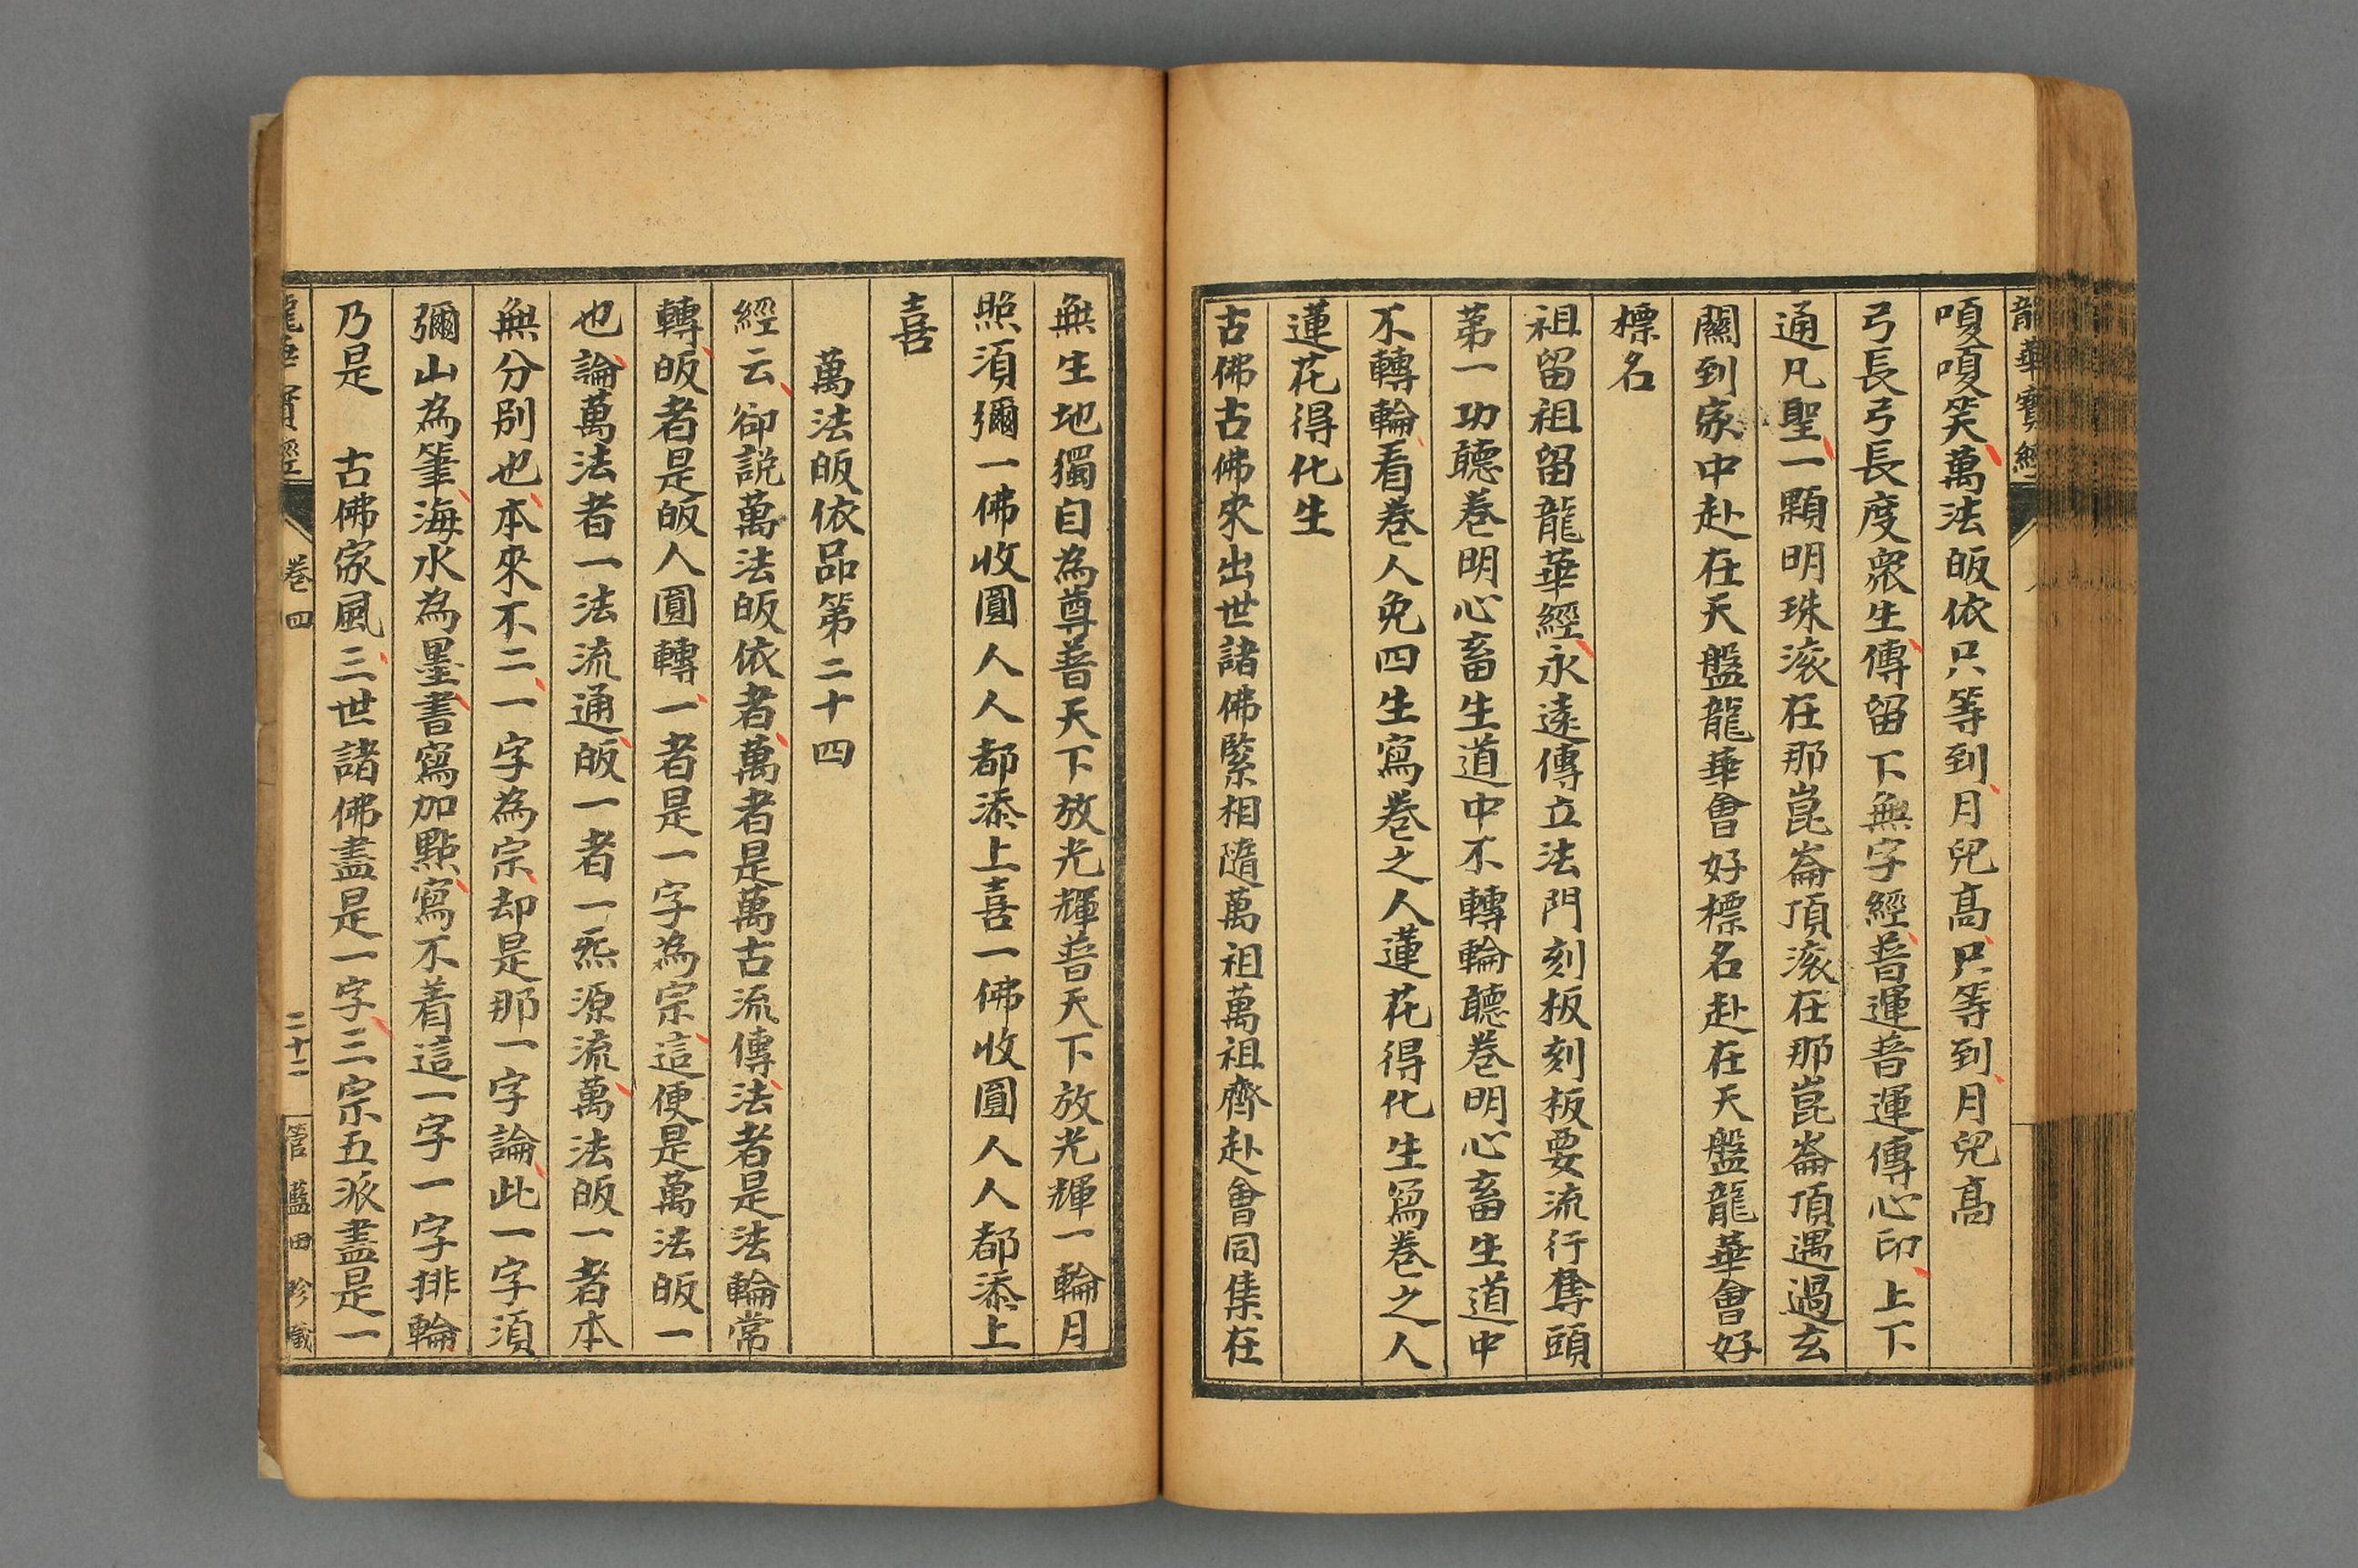 龍華寶經
嗄嗄笑萬法皈依只等到月兒髙只等到月兒髙
弓長弓長度衆生傳留下無字經普運普運傳心印上下
通凡聖一顆明珠滚在那崑崙頂滚在那崑崙頂遇過玄
關到家中赴在天盤龍華會好標名赴在天盤龍華會好
標名
祖留祖留龍華經永遠傳立法門刻板刻板要流行奪頭
苐一功聽卷明心畜生道中不轉輪聽卷明心畜生道中
不轉輪看卷人免四生寫卷之人蓮花得化生寫卷之人
蓮花得化生
古佛古佛來出世諸佛緊相隨萬祖萬祖齊赴會同集在
無生地獨自為尊普天下放光輝普天下放光輝一輪月
照須彌一佛收圓人人都添上喜一佛收圓人人都添上
喜
萬法皈依品第二十四
經云卻説萬法皈依者萬者是萬古流傳法者是法輪常
轉皈者是皈人圓轉一者是一字為宗這便是萬法皈一
也論萬法者一法流通皈一者一炁源流萬法皈一者本
無分別也本來不二一字為宗却是那一字論此一字須
彌山為筆海水為墨書寫加點寫不着這一字一字排輪
乃是　古佛家風三世諸佛盡是一字三宗五派盡是一
龍華寶經
卷四
二十二
管藍田珍藏